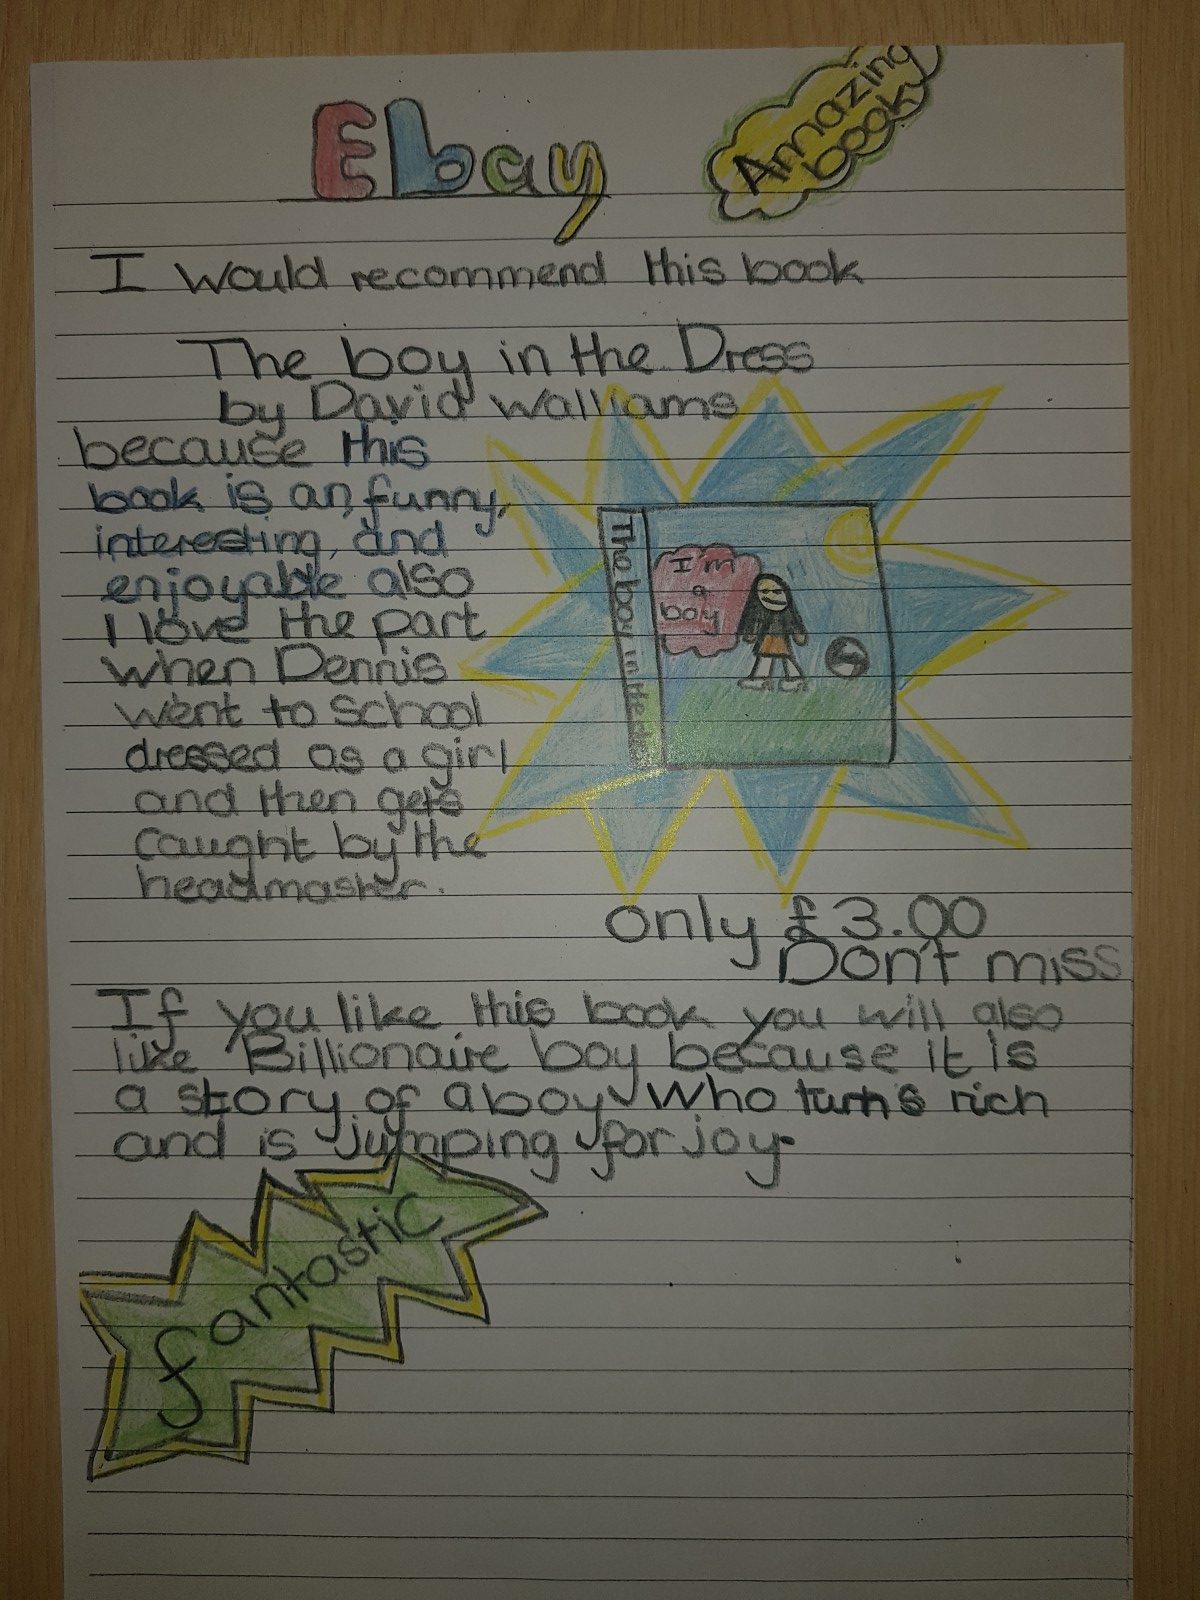 Ebay
Amazing
book
I would recommend this book
The boy in the Dress
by David walliams
because this
book is an funny,
interesting, and
enjoyable also
I love the part
when Dennis
went to school
dressed as a girl
and then gets
caught by the
headmaster.
The boy in the dress
I'm
a
boy
only £3.00
Don't miss
If you like this book you will also
like Billionaire boy because it is
a story of a boy who turns rich
and is jumping for joy.
fantastic